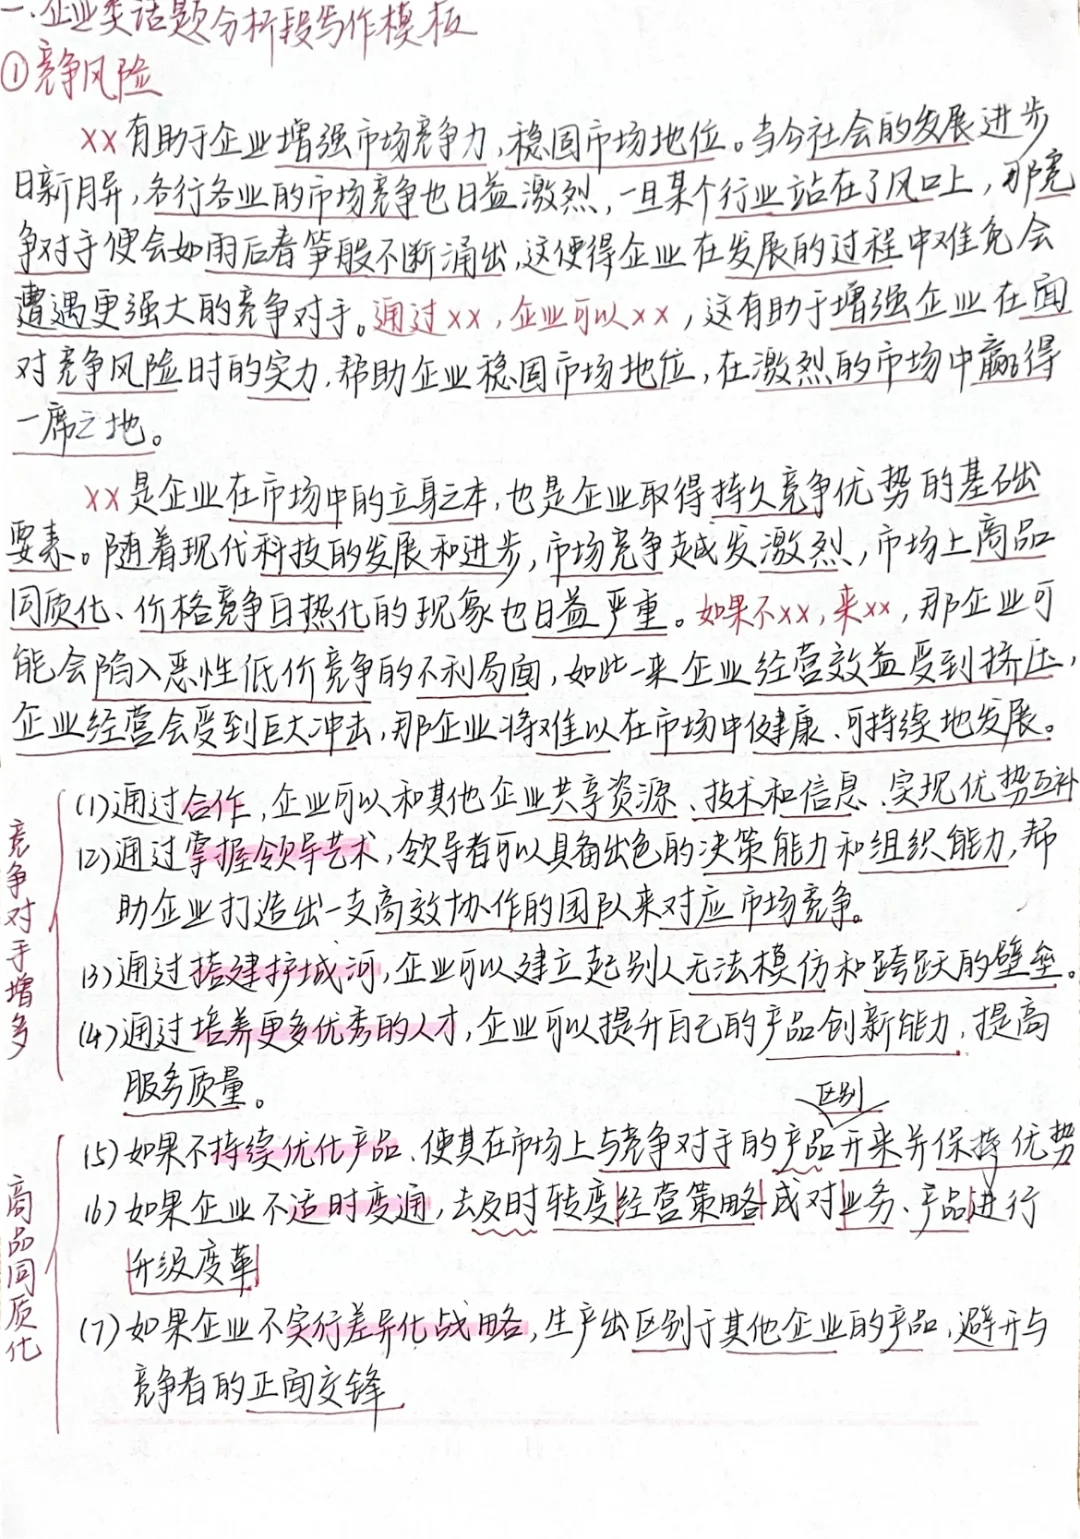 一.企业类话题分析段写作模板
①竞争风险
xx有助于企业增强市场竞争力,稳固市场地位。当今社会的发展进步
日新月异,各行各业的市场竞争也日益激烈,一旦某个行业站在了风口上,那竞
争对手便会如雨后春笋般不断涌出,这使得企业在发展的过程中难免会
遭遇更强大的竞争对手。通过xx,企业可以xx,这有助于增强企业在面
对竞争风险时的实力,帮助企业稳固市场地位,在激烈的市场中赢得
一席之地。
xx是企业在市场中的立身之本,也是企业取得持久竞争优势的基础
要素。随着现代科技的发展和进步,市场竞争越发激烈,市场上商品
同质化、价格竞争白热化的现象也日益严重。如果不xx,来xx,那企业可
能会陷入恶性低价竞争的不利局面,如此一来企业经营效益受到挤压,
企业经营会受到巨大冲击,那企业将难以在市场中健康、可持续地发展。
竞争对手增多
(1)通过合作,企业可以和其他企业共享资源、技术和信息、实现优势互补
(2)通过掌握领导艺术,领导者可以具备出色的决策能力和组织能力,帮
助企业打造出一支高效协作的团队来对应市场竞争。
(3)通过搭建护城河,企业可以建立起别人无法模仿和跨跃的壁垒。
(4)通过培养更多优秀的人才,企业可以提升自己的产品创新能力,提高
服务质量。
商品同质化
区别
(5)如果不持续优化产品、使其在市场上与竞争对手的产品开来并保持优势
(6)如果企业不适时变通,去及时转变经营策略或对业务、产品进行
升级变革
(7)如果企业不实行差异化战略,生产出区别于其他企业的产品,避开与
竞争者的正面交锋